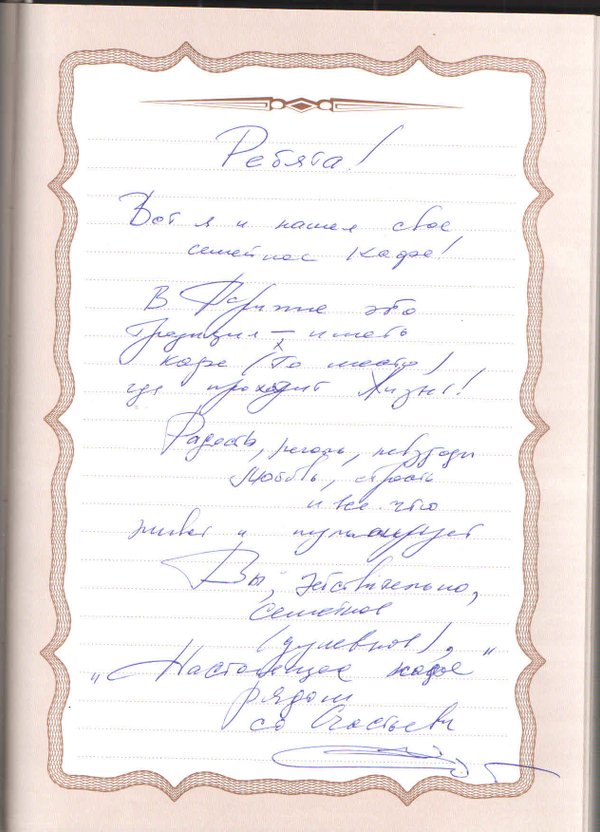 Ребята!
Вот я и нашел свое
семейное кафе!
В Париже это
традиция — иметь
кафе (то место)
где проходит жизнь!
Радость, невзгоды
Любовь, страсть
и все что
живет и пульсирует
Вы, действительно,
семейное
(душевное),
„Настоящее кафе“
рядом
со счастьем